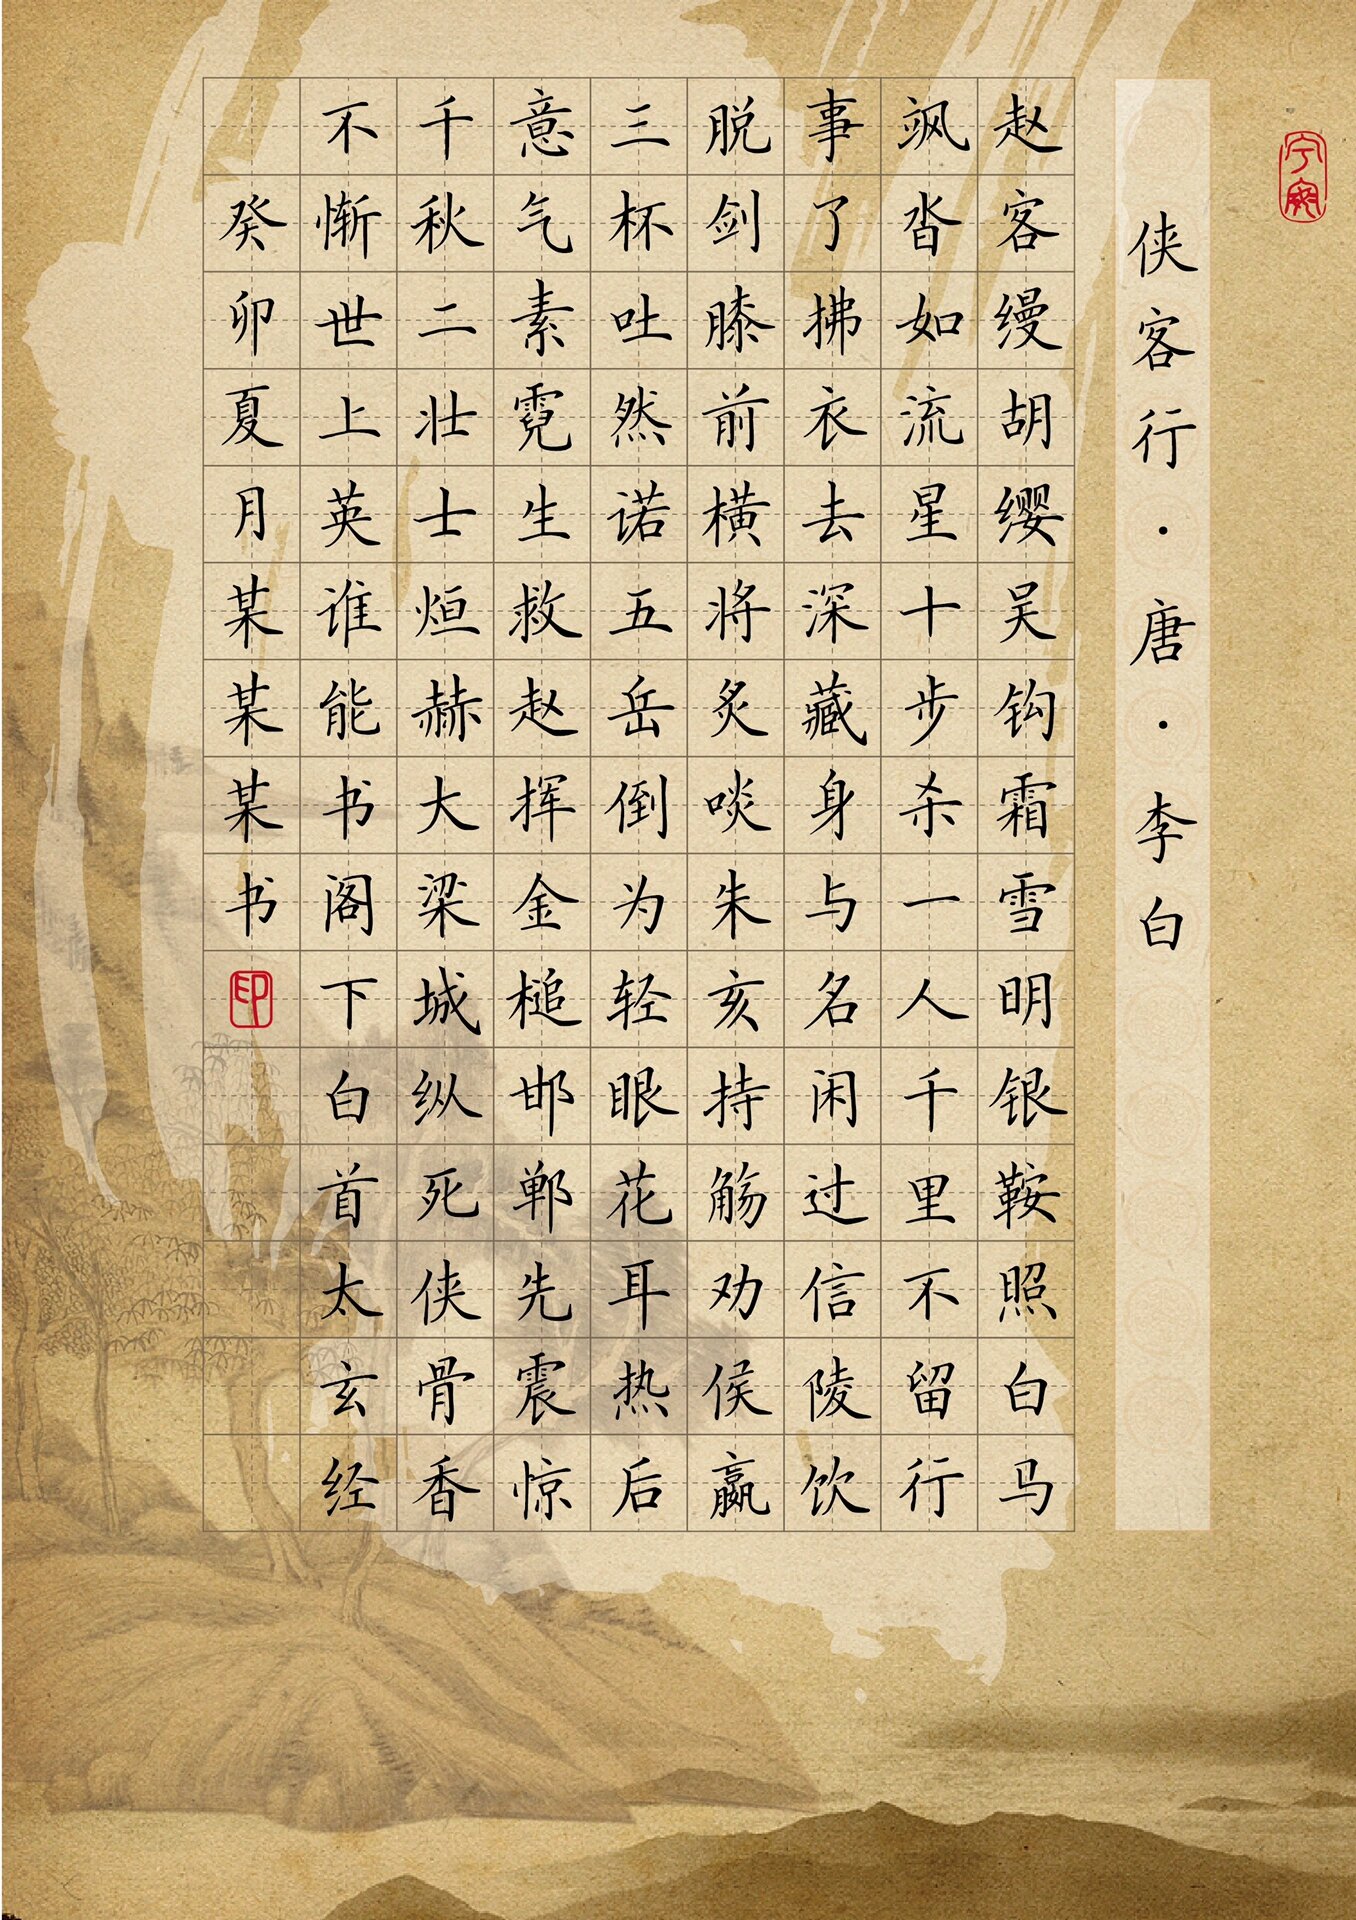 侠客行·唐·李白
赵客缦胡缨吴钩霜雪明银鞍照白马
飒沓如流星十步杀一人千里不留行
事了拂衣去深藏身与名闲过信陵饮
脱剑膝前横将炙啖朱亥持觞劝侯嬴
三杯吐然诺五岳倒为轻眼花耳热后
意气素霓生救赵挥金槌邯郸先震惊
千秋二壮士烜赫大梁城纵死侠骨香
不惭世上英谁能书阁下白首太玄经
癸卯夏月某某某书印